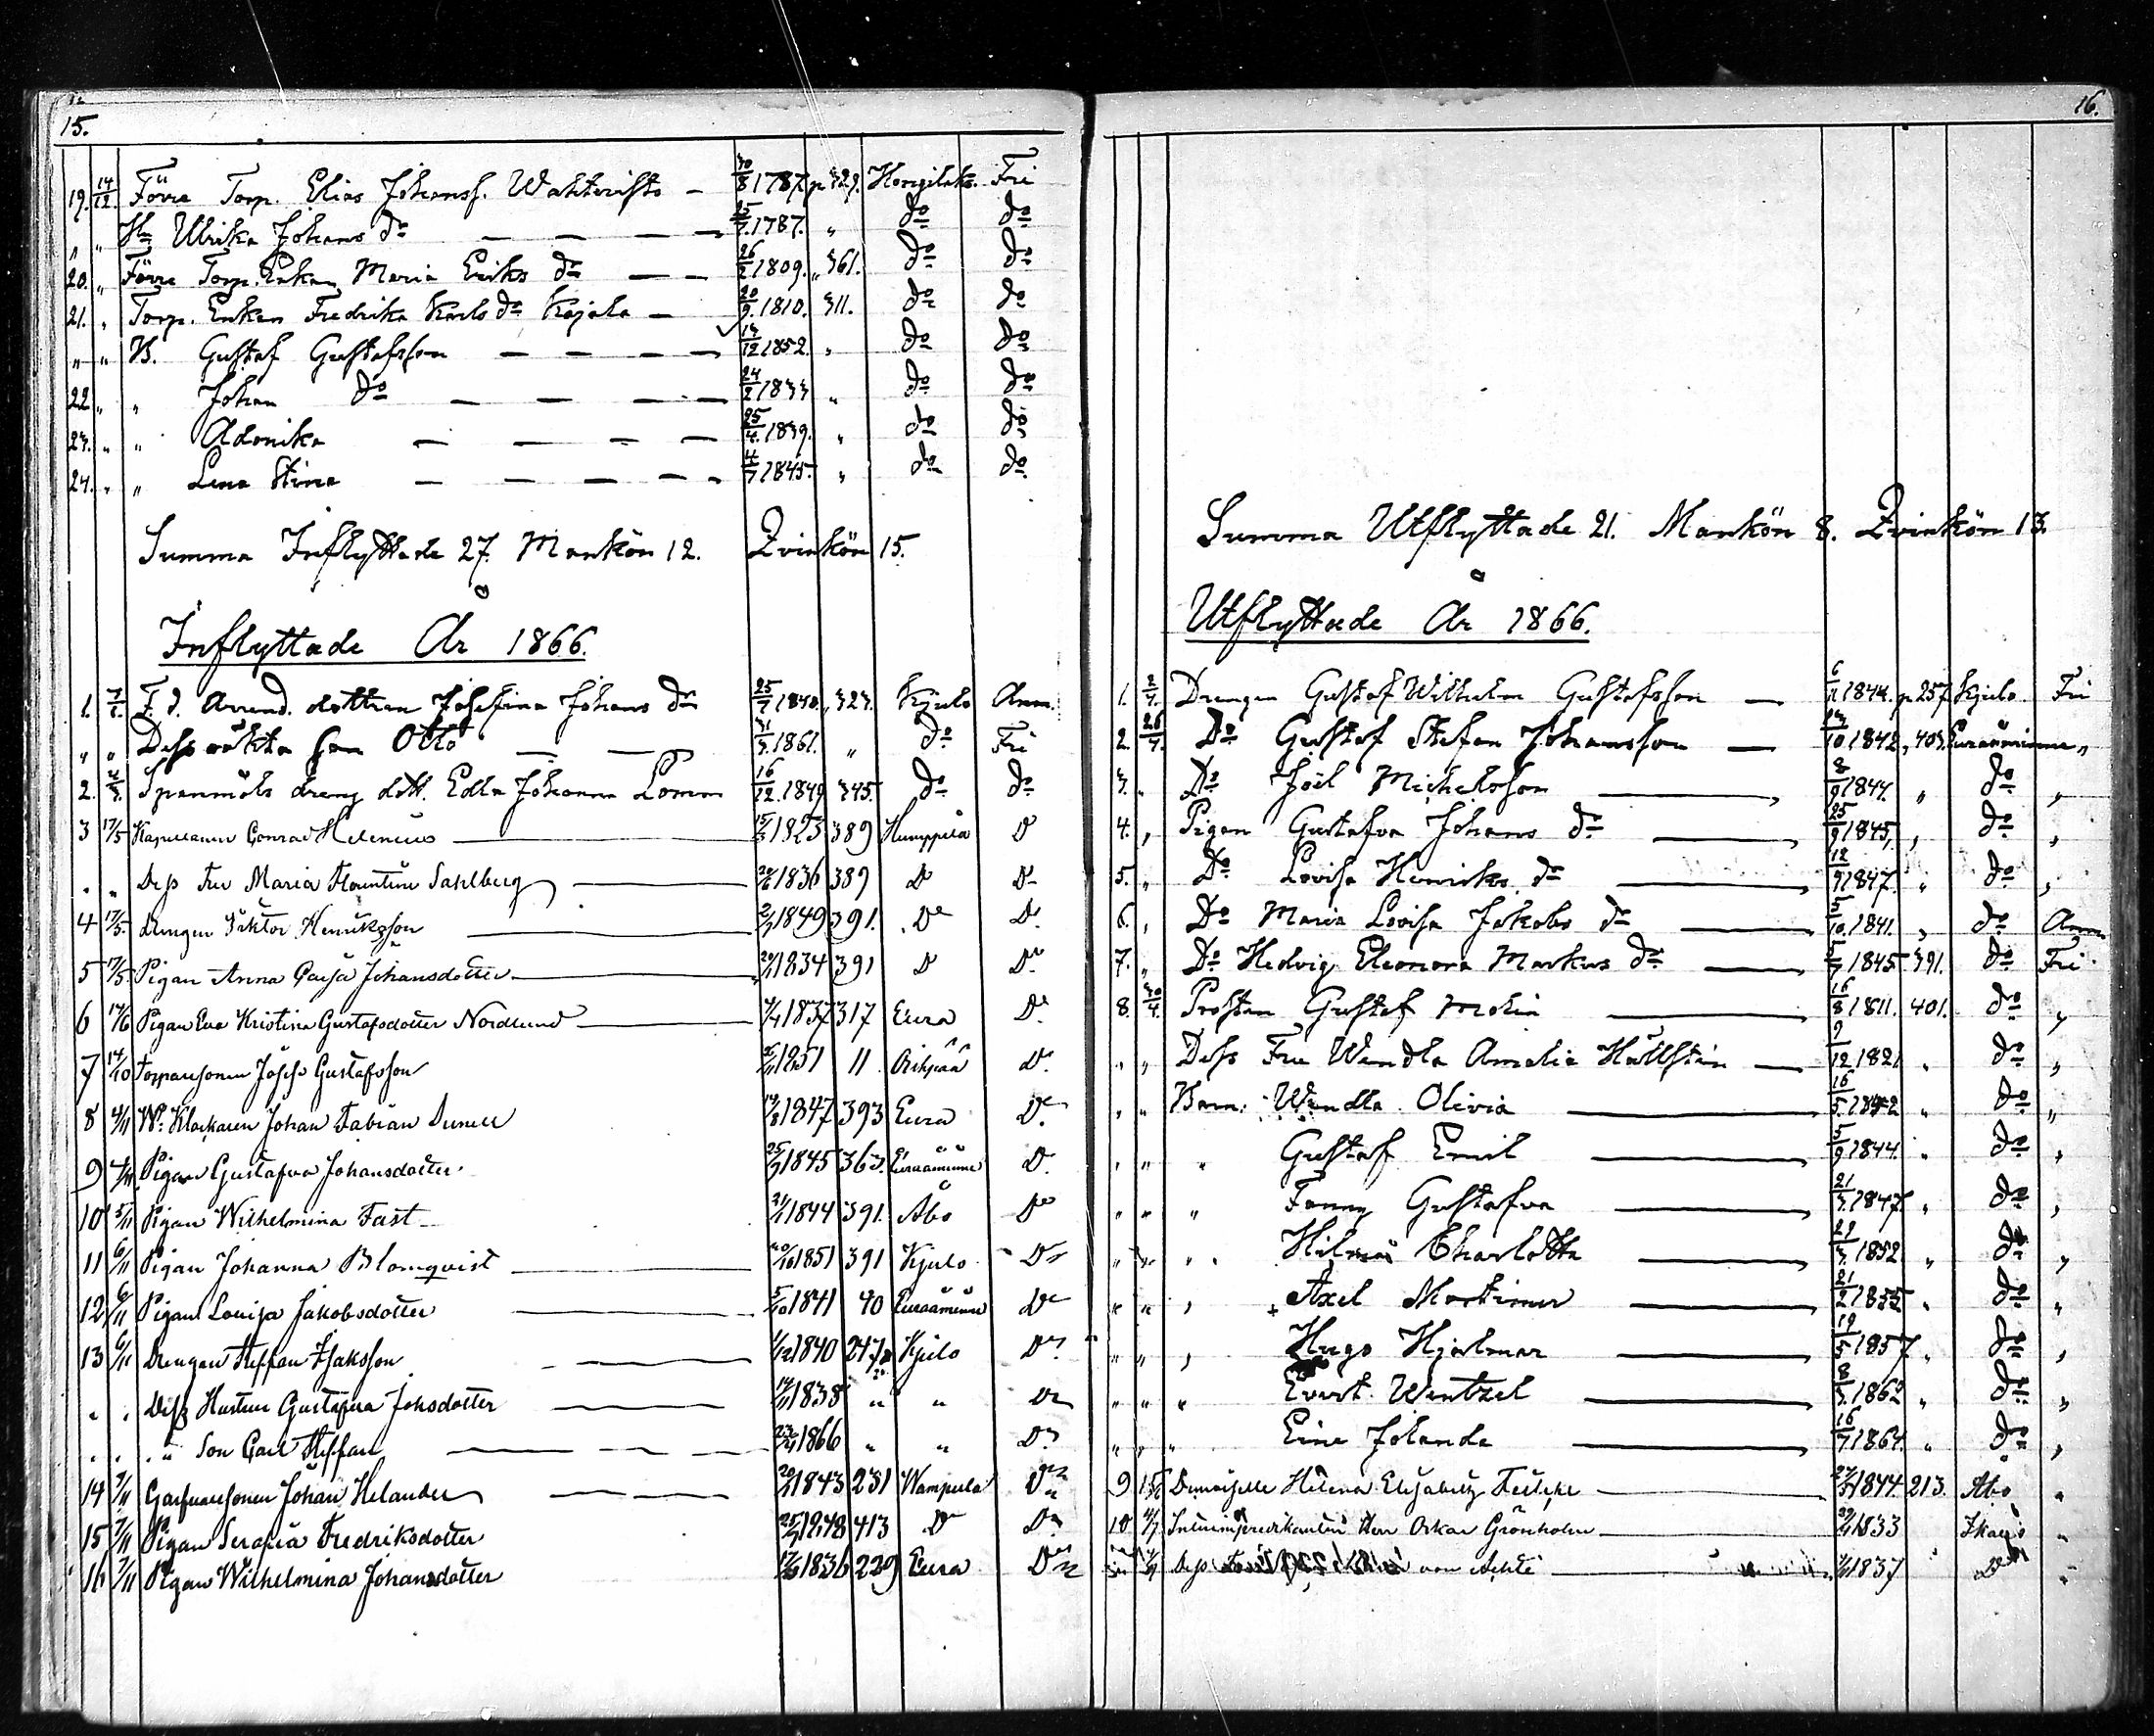 15.
19. 14/12 Förre Torp. Elias Johanss. Wahteristo — 30/8 1787. p 329. Hongilaks. Fri
" " Hu Ulrika Johans dr — — — — 25/7. 1787. " do do
20. " Förre Torp. Enkan Maria Eriks dr — — 26/2 1809. " 361. do do
21. " Torp. Enkan Fredrika Karls dr Kajala — 20/9. 1810. 311. do do
" " B. Gustaf Gustafsson — — — — 13/12 1852. " do do
22. " " Johan do — — — — 24/2 1833 " do do
23. " " Adonika — — — — 25/4. 1839. " do do
24. " " Lena Stina — — — — 4/7 1845. " do do
Summa Inflyttade 27. Mankön 12. Qvinkön 15.
Inflyttade År 1866.
1. F. d. Arrend. dottren Josefina Johans dr 25/7 1840. " 323. Kjulo Anm.
" " Dess oäkta son Otto — — 31/3. 1861. " do Fri
2. Spanmåls dreng dott. Edla Johanna Lomm 16/12. 1849 345. do do
3 17/5 Kapellanen Conrad Helenius — 15/3 1823 389 Humppila D
" " Dess Fru Maria Florentine Sahlberg — 1836 389 D D
4 17/5. Drengen Viktor Henriksson — 2/7 1849 391. Do D
5 17/5. Pigan Anna Caisa Johansdotter — 1834 391 D Do
6 17/6 Pigan Eva Kristina Gustafsdotter Nordlund — 1837 317 Eura Do
7 14/10 Torparesonen Josef Gustafsson 1851 11 Oripää Do
8 4/11 Klockaren Johan Fabian 1847 393 Eura Do
9 4/11 Pigan Gustafva Johansdotter 25/9 1845 363. Euraåminne D.
10 5/11 Pigan Wilhelmina Fast 1844 391. Åbo Do
11 6/11 Pigan Johanna Blomqvist — 1851 391 Kjulo Do
12 6/11 Pigan Lovisa Jakobsdotter — 5/10 1841 40 Euraåminne Do
13 6/11 Drengen Steffan Isaksson — 1840 247 Kjulo Do
" " Dess Hustru Gustafva Johsdotter — — — 1838 " " Do
" " " Son Carl Steffan — — — — 1866 " " Do
14 7/11 Johan Helander — — — 1843 231 Wampula Do
15 7/11 Pigan Serafia Fredriksdotter 1848 413 D Do
16 7/11 Pigan Wilhelmina Johansdotter 1836 229 Eura Do
16.
Summa Utflyttade 21. Mankön 8. Qvinkön 13.
Utflyttade År 1866.
1. 2/4. Drengen Gustaf Wilhelm Gustafsson — 1844. p 257 Kjulo. Fri
2. 26/4. Do Gustaf Stefan Johansson — 13/10 1842. " 403. Euraåminne "
3. " Do Joël Michelsson — 8/9 1844. " do "
4. " Pigan Gustafva Johans dr — 25/9 1845. " do "
5. " Do Lovisa Henriks dr — 12/9 1847. " do "
6. " Do Maria Lovisa Jakobs dr — 5/10. 1841. " do Anm
7. " Do Hedvig Eleonora Markus dr — 5/7 1845 391. do Fri
8. 30/4. Prosten Gustaf Molin — 16/8 1811. 401. do "
" " Dess Fru Wendla Amalia Hällstén — 9/12 1821 " do "
" " Barn: Wendla Olivia — 16/5. 1842 " do "
" " " Gustaf Emil — 5/9 1844. " do "
" " " Fanny Gustafva — 21/3. 1847 " do "
" " " Hilma Charlotta — 22/3. 1852 " do "
" " " Axel Mortimer — 21/2 1855 " do "
" " " Hugo Hjalmar — 19/5 1857 " do "
" " " Evert Wentzel — 8/3. 1862 " do "
" " " Eine Jolanda — 16/7. 1864. " do "
9 Demoiselle Helena Elisabeth — 1844. 213. Åbo "
10 Herr Oskar Grönholm — 1833 "
Dess von — 1837 Do "